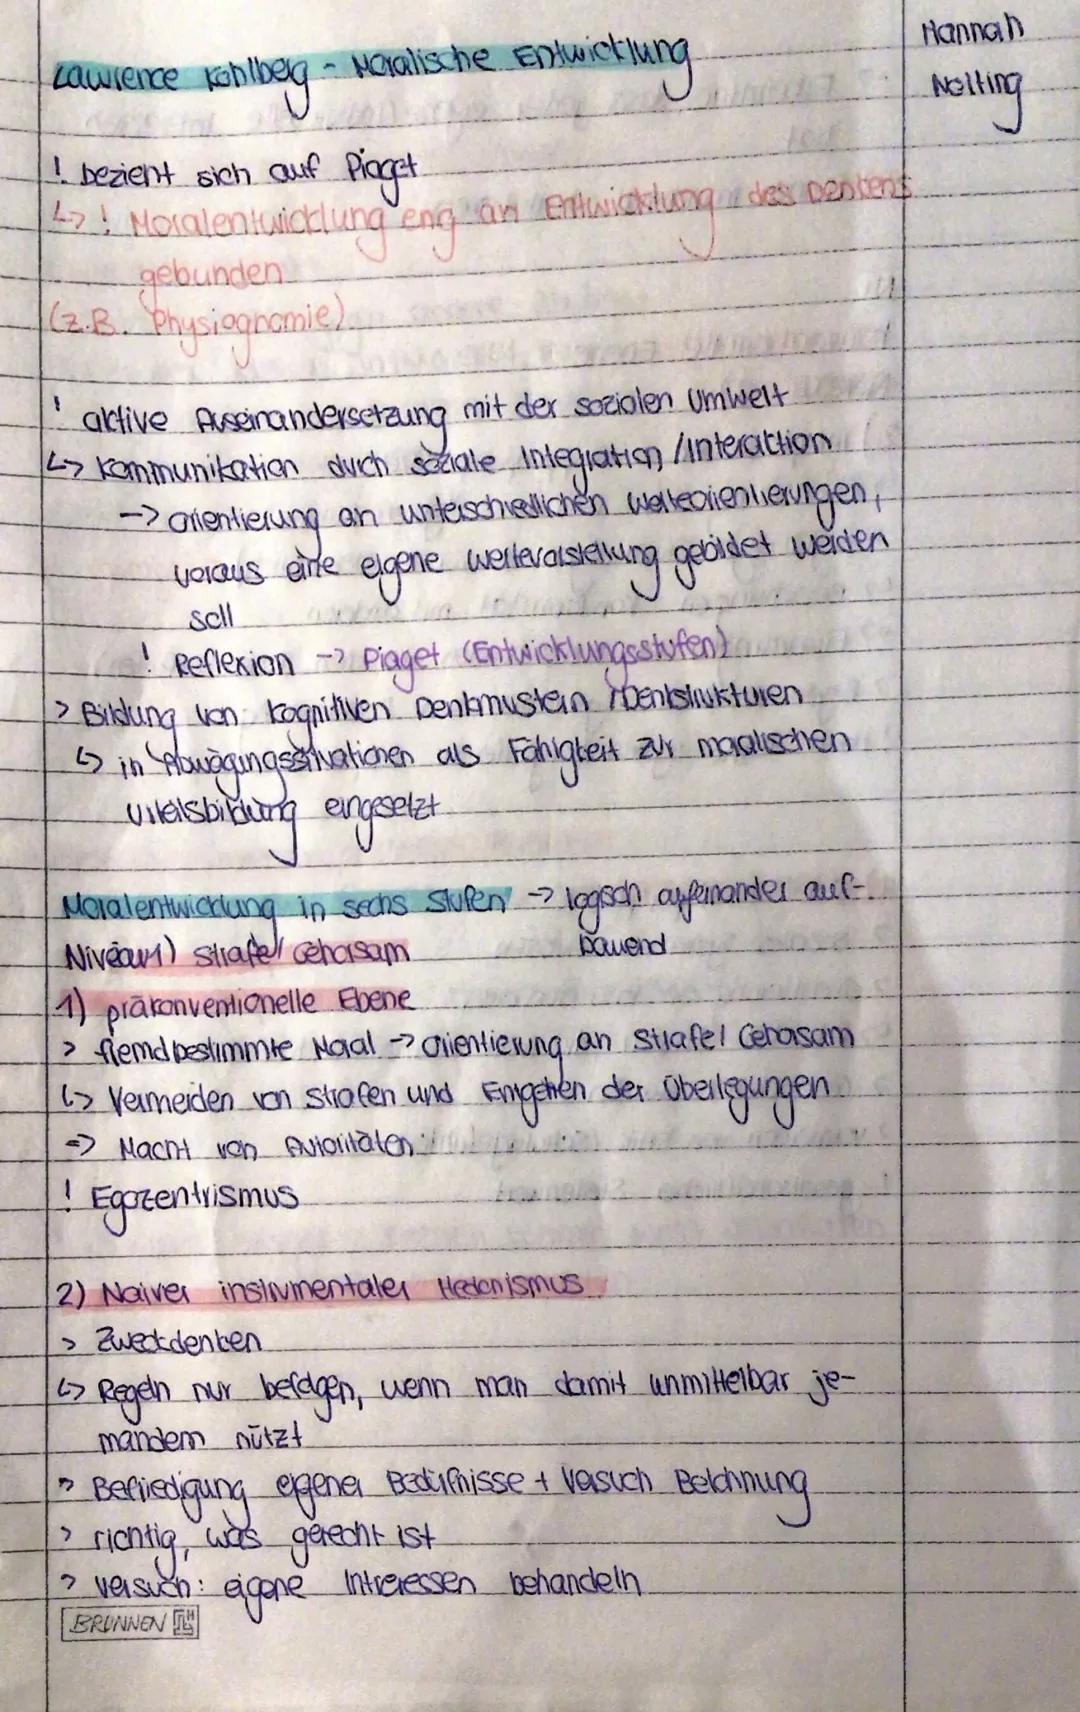 Hannah
Nolting
Lawrence Kohlberg - Moralische Entwicklung
! bezieht sich auf Piaget
↳ ! Moralentwicklung eng an Entwicklung des Denkens
gebunden
(z.B. Physiognomie)
! aktive Auseinandersetzung mit der sozialen Umwelt
↳ Kommunikation durch soziale Integration / Interaktion
-> Orientierung an unterschiedlichen Werteorientierungen,
voraus eine eigene Wertevorstellung gebildet werden
soll
! Reflexion -> Piaget (Entwicklungsstufen)
> Bildung von kognitiven Denkmustern / Denkstrukturen
↳ in Abwägungssituationen als Fähigkeit zur moralischen
Urteilsbildung eingesetzt
Moralentwicklung in sechs Stufen -> logisch aufeinander auf-
bauend
Niveau 1) Strafe / Gehorsam
1) präkonventionelle Ebene
> fremdbestimmte Moral -> Orientierung an Strafe / Gehorsam
↳ Vermeiden von Strafen und Entgehen der Überlegungen
=> Macht von Autoritäten
! Egozentrismus
2) Naiver instrumentaler Hedonismus
> Zweckdenken
↳ Regeln nur befolgen, wenn man damit unmittelbar je-
mandem nützt
> Befriedigung eigener Bedürfnisse + Versuch Belohnung
> richtig, was gerecht ist
> Versuch: eigene Intreressen behandeln
BRUNNEN